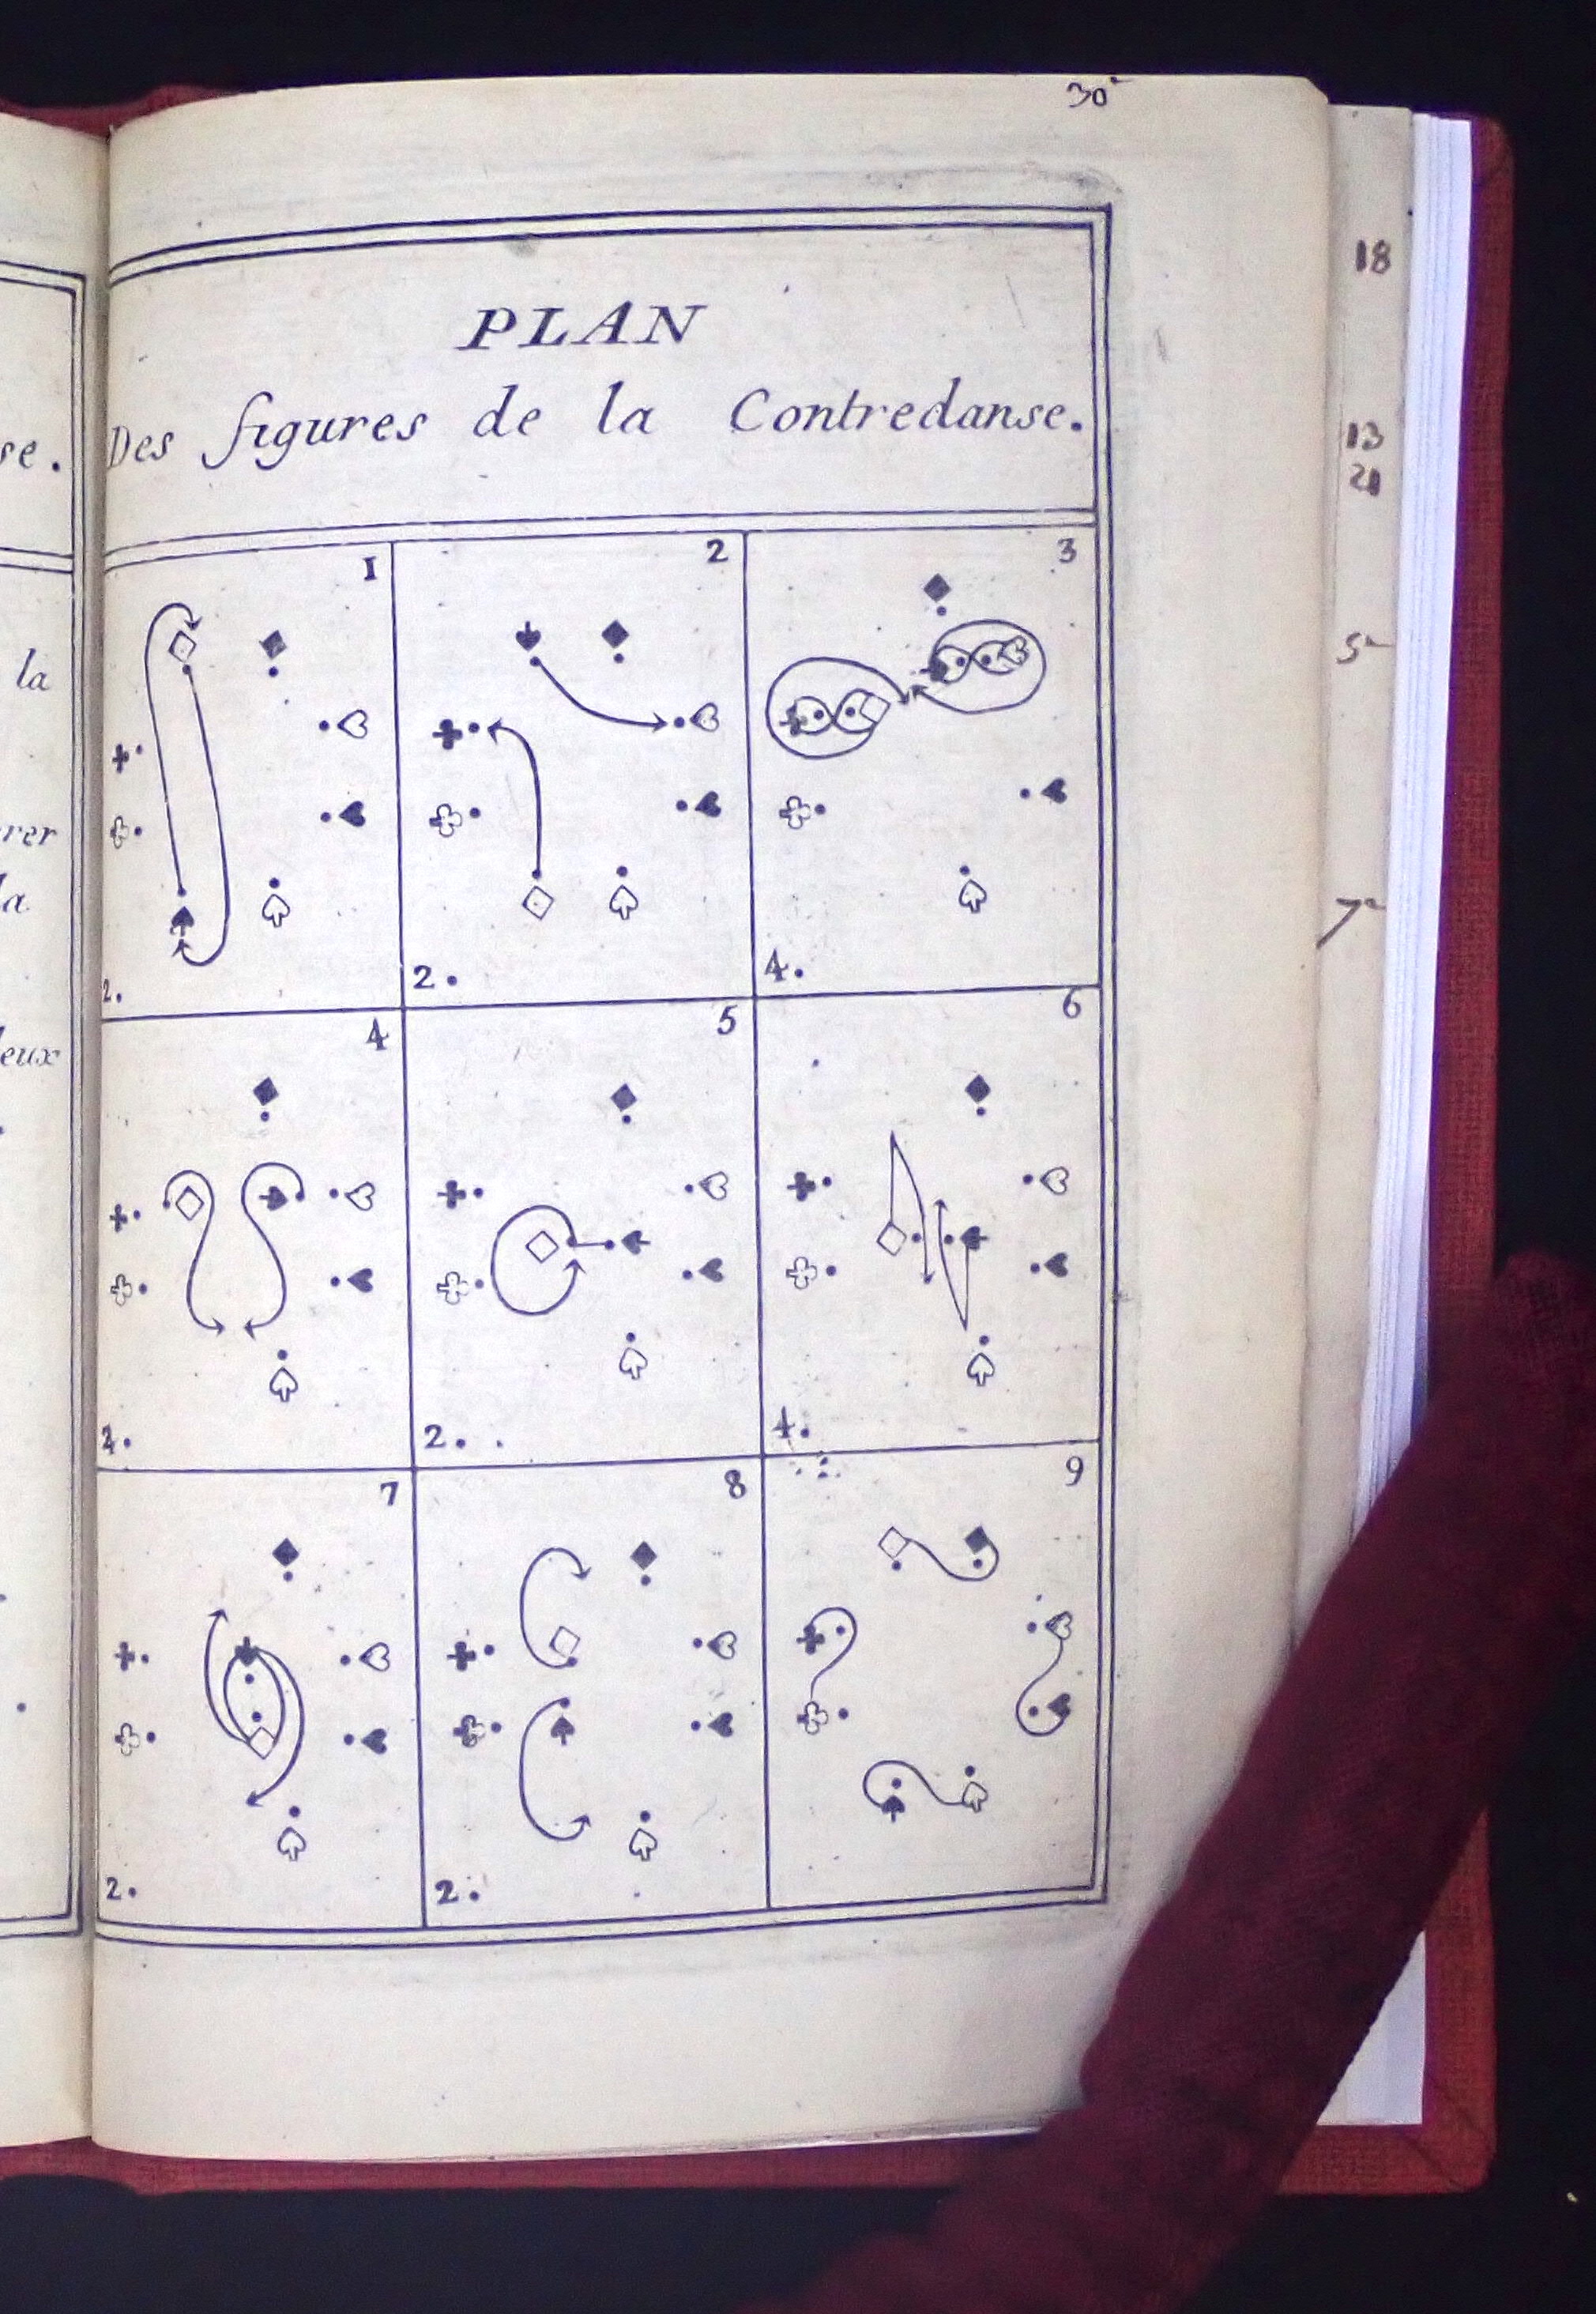 30
PLAN
Des figures de la Contredanse.
1
2
3
2.
2.
4.
4
5
6
2.
4.
7
8
9
2.
2.
se.
la
rer
la
eux
18
13
21